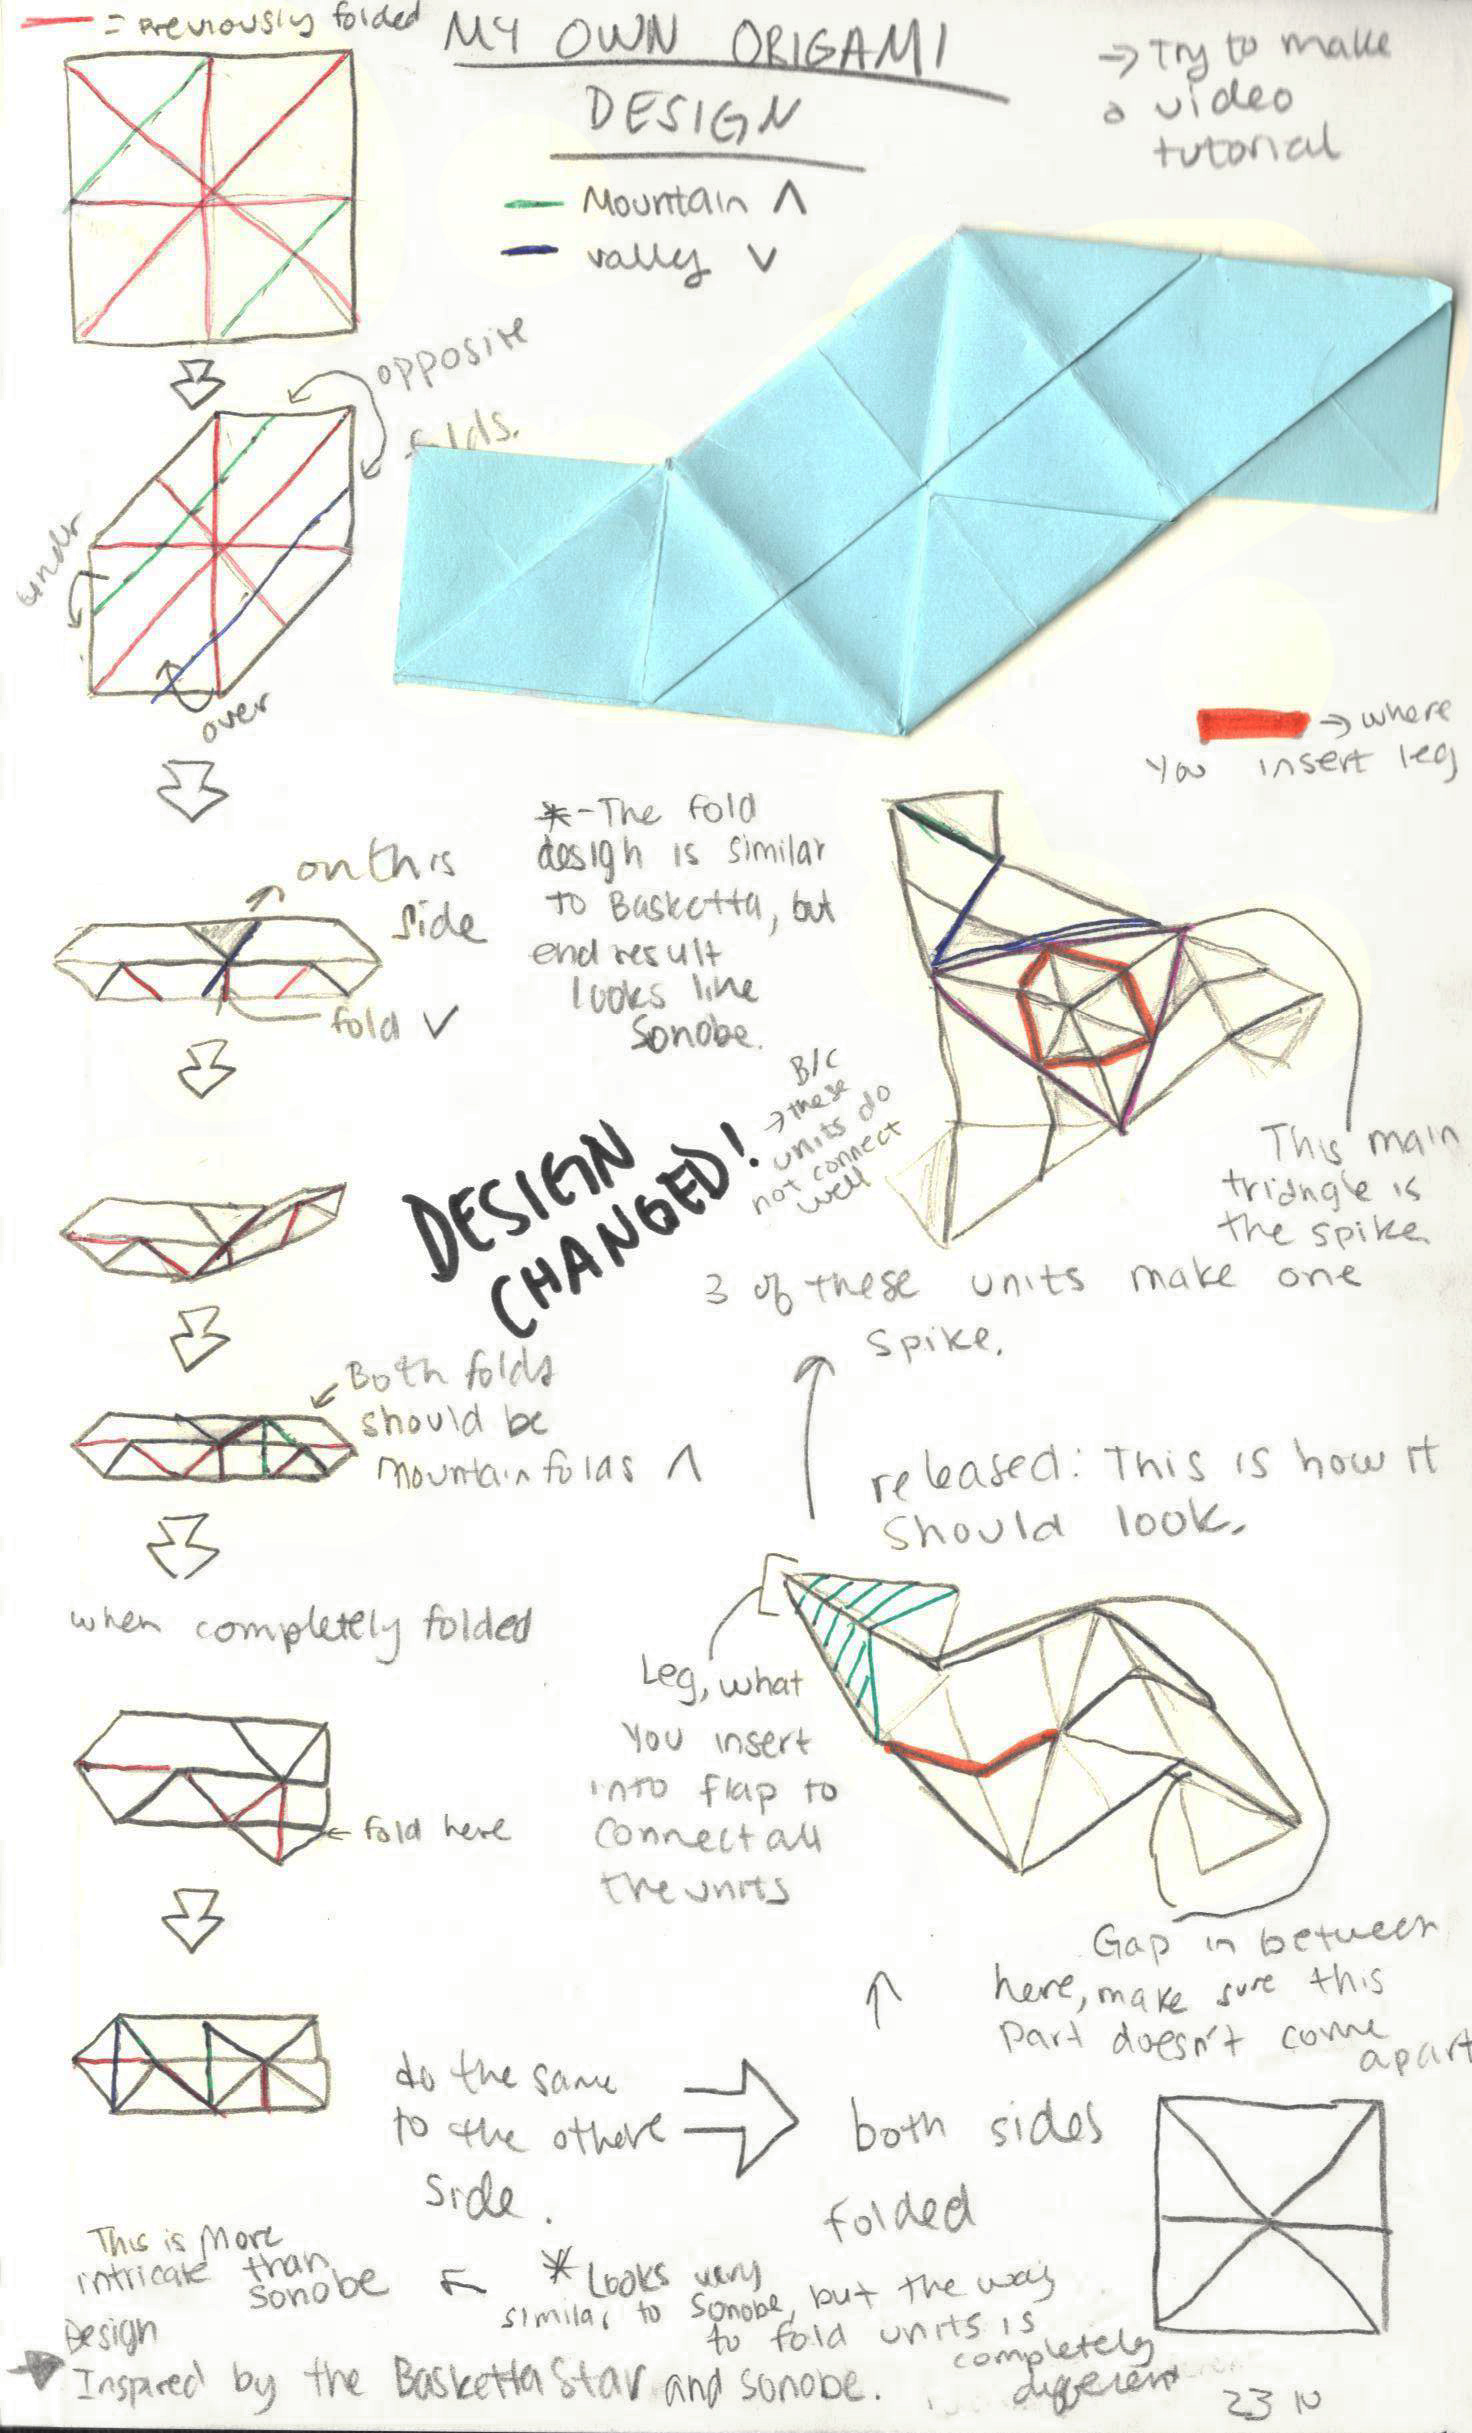 = Previously folded
MY OWN ORIGAMI
DESIGN
→ Try to make
a video
tutorial
Mountain Λ
vally V
opposite
folds.
under
over
→ where
you insert leg
on this
side
fold V
*-The fold
design is similar
to Basketta, but
end result
looks line
Sonobe.
DESIGN
CHANGED!
B/C
→ these
units do
not connect
well
This main
triangle is
the spike.
3 of these units make one
spike.
Both folds
should be
Mountain folds Λ
released: This is how it
should look.
when completely folded
Leg, what
you insert
into flap to
connect all
the units
← fold here
Gap in between
here, make sure this
part doesn't come
apart
do the same
to the othere
side.
both sides
folded
This is More
intricate than
sonobe
← * Looks very
similar to Sonobe, but the way
to fold units is
completely
different
Design
Inspired by the Basketta Star and sonobe.